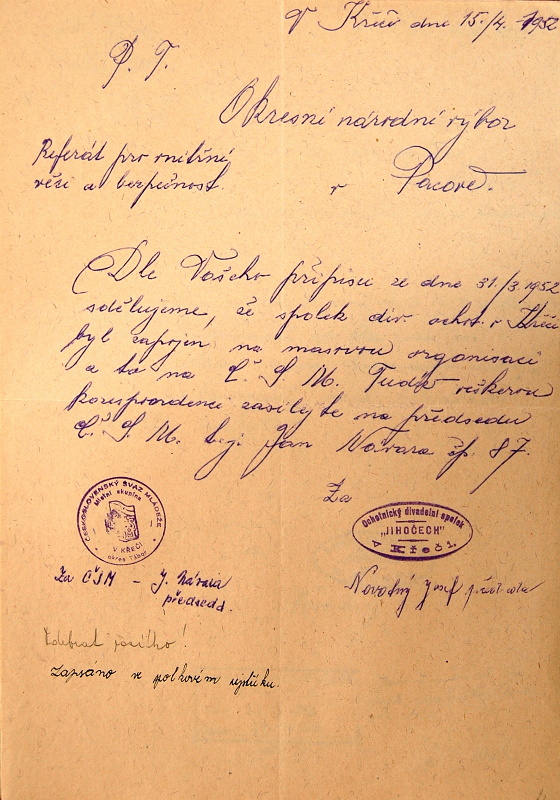 V Křeči dne 15./4. 1952
P. T.
Okresní národní výbor
Referát pro vnitřní
věci a bezpečnost.
v Pacově.
Dle Vašeho přípisu ze dne 31/3 1952
sdělujeme, že spolek div. ochot. v Křeči
byl zapojen na masovou organisaci
a to na Č. S. M. Tudíž veškerou
korespondenci zasílejte na předsedu
Č. S. M. Jan Návara čp. 87.
Za
ČESKOSLOVENSKÝ SVAZ MLÁDEŽE
Místní skupina
V KŘEČI
okres Tábor
Ochotnický divadelní spolek
"JIHOČECH"
v Křeči.
Za ČSM - J. Návara
předsed.
Novotný Josef
Zapsáno ve spolkovém rejstříku.